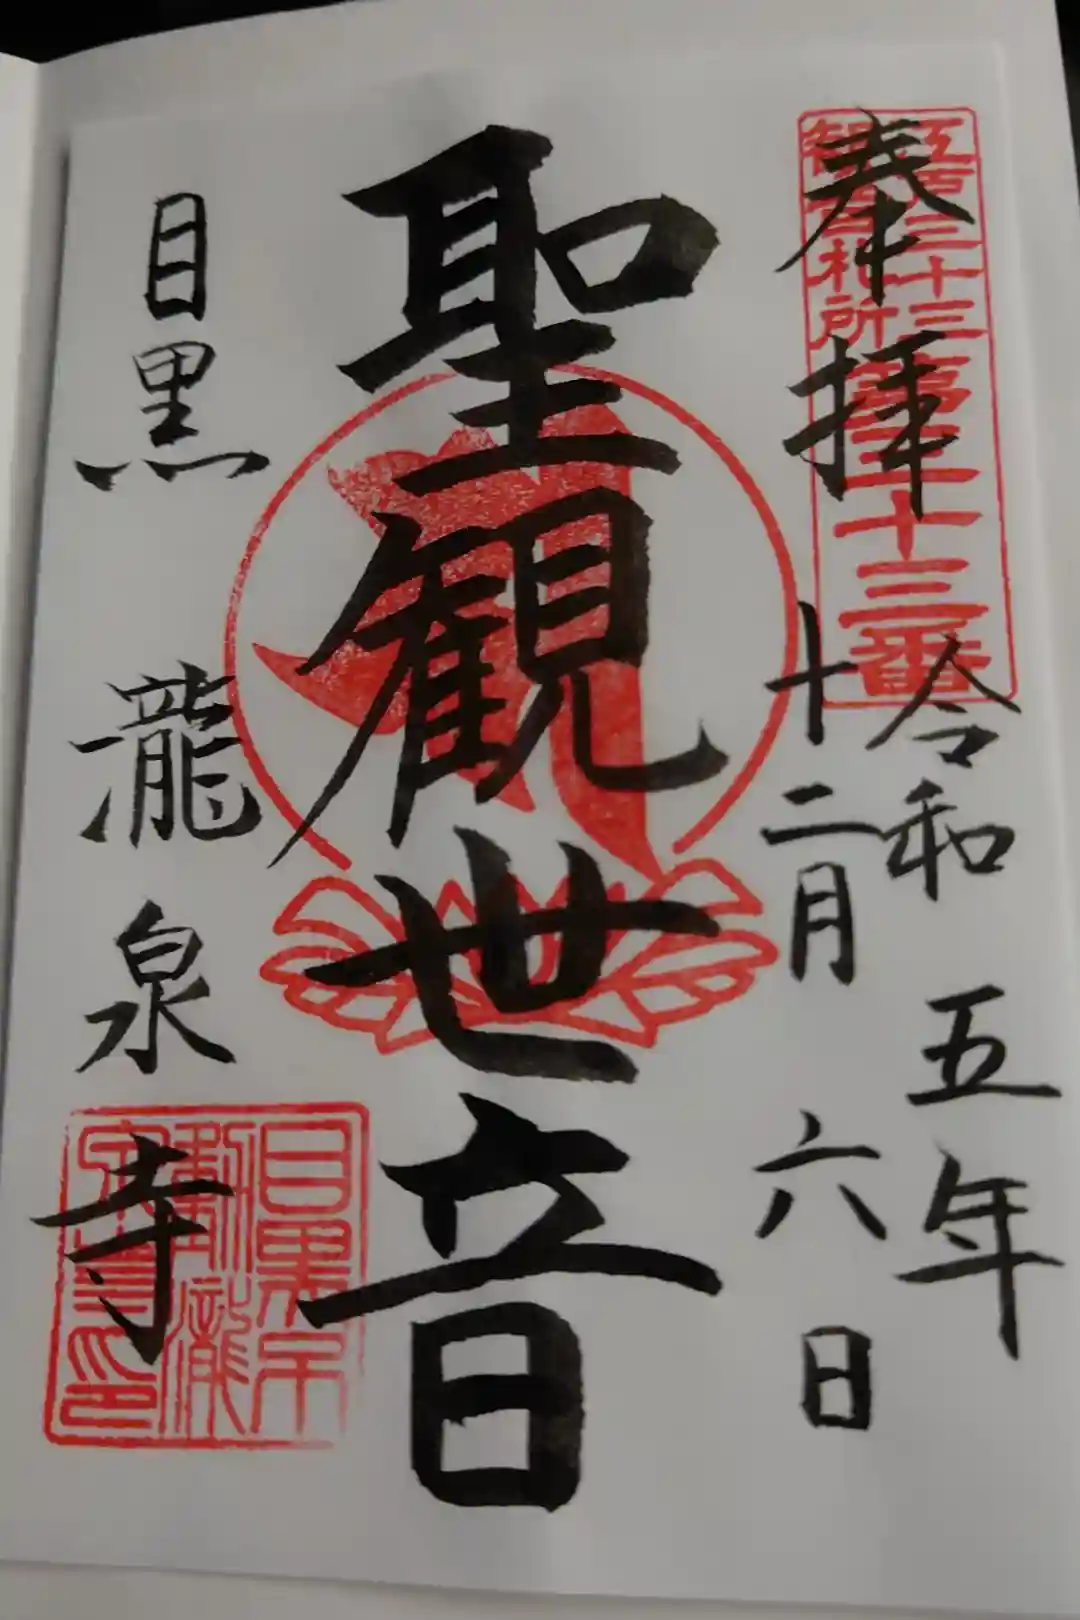 奉拝
江戸三十三
観音札所
第三十三番
令和五年
十二月六日
聖観世音
目黒 瀧泉寺
目黒不
動瀧
泉寺印